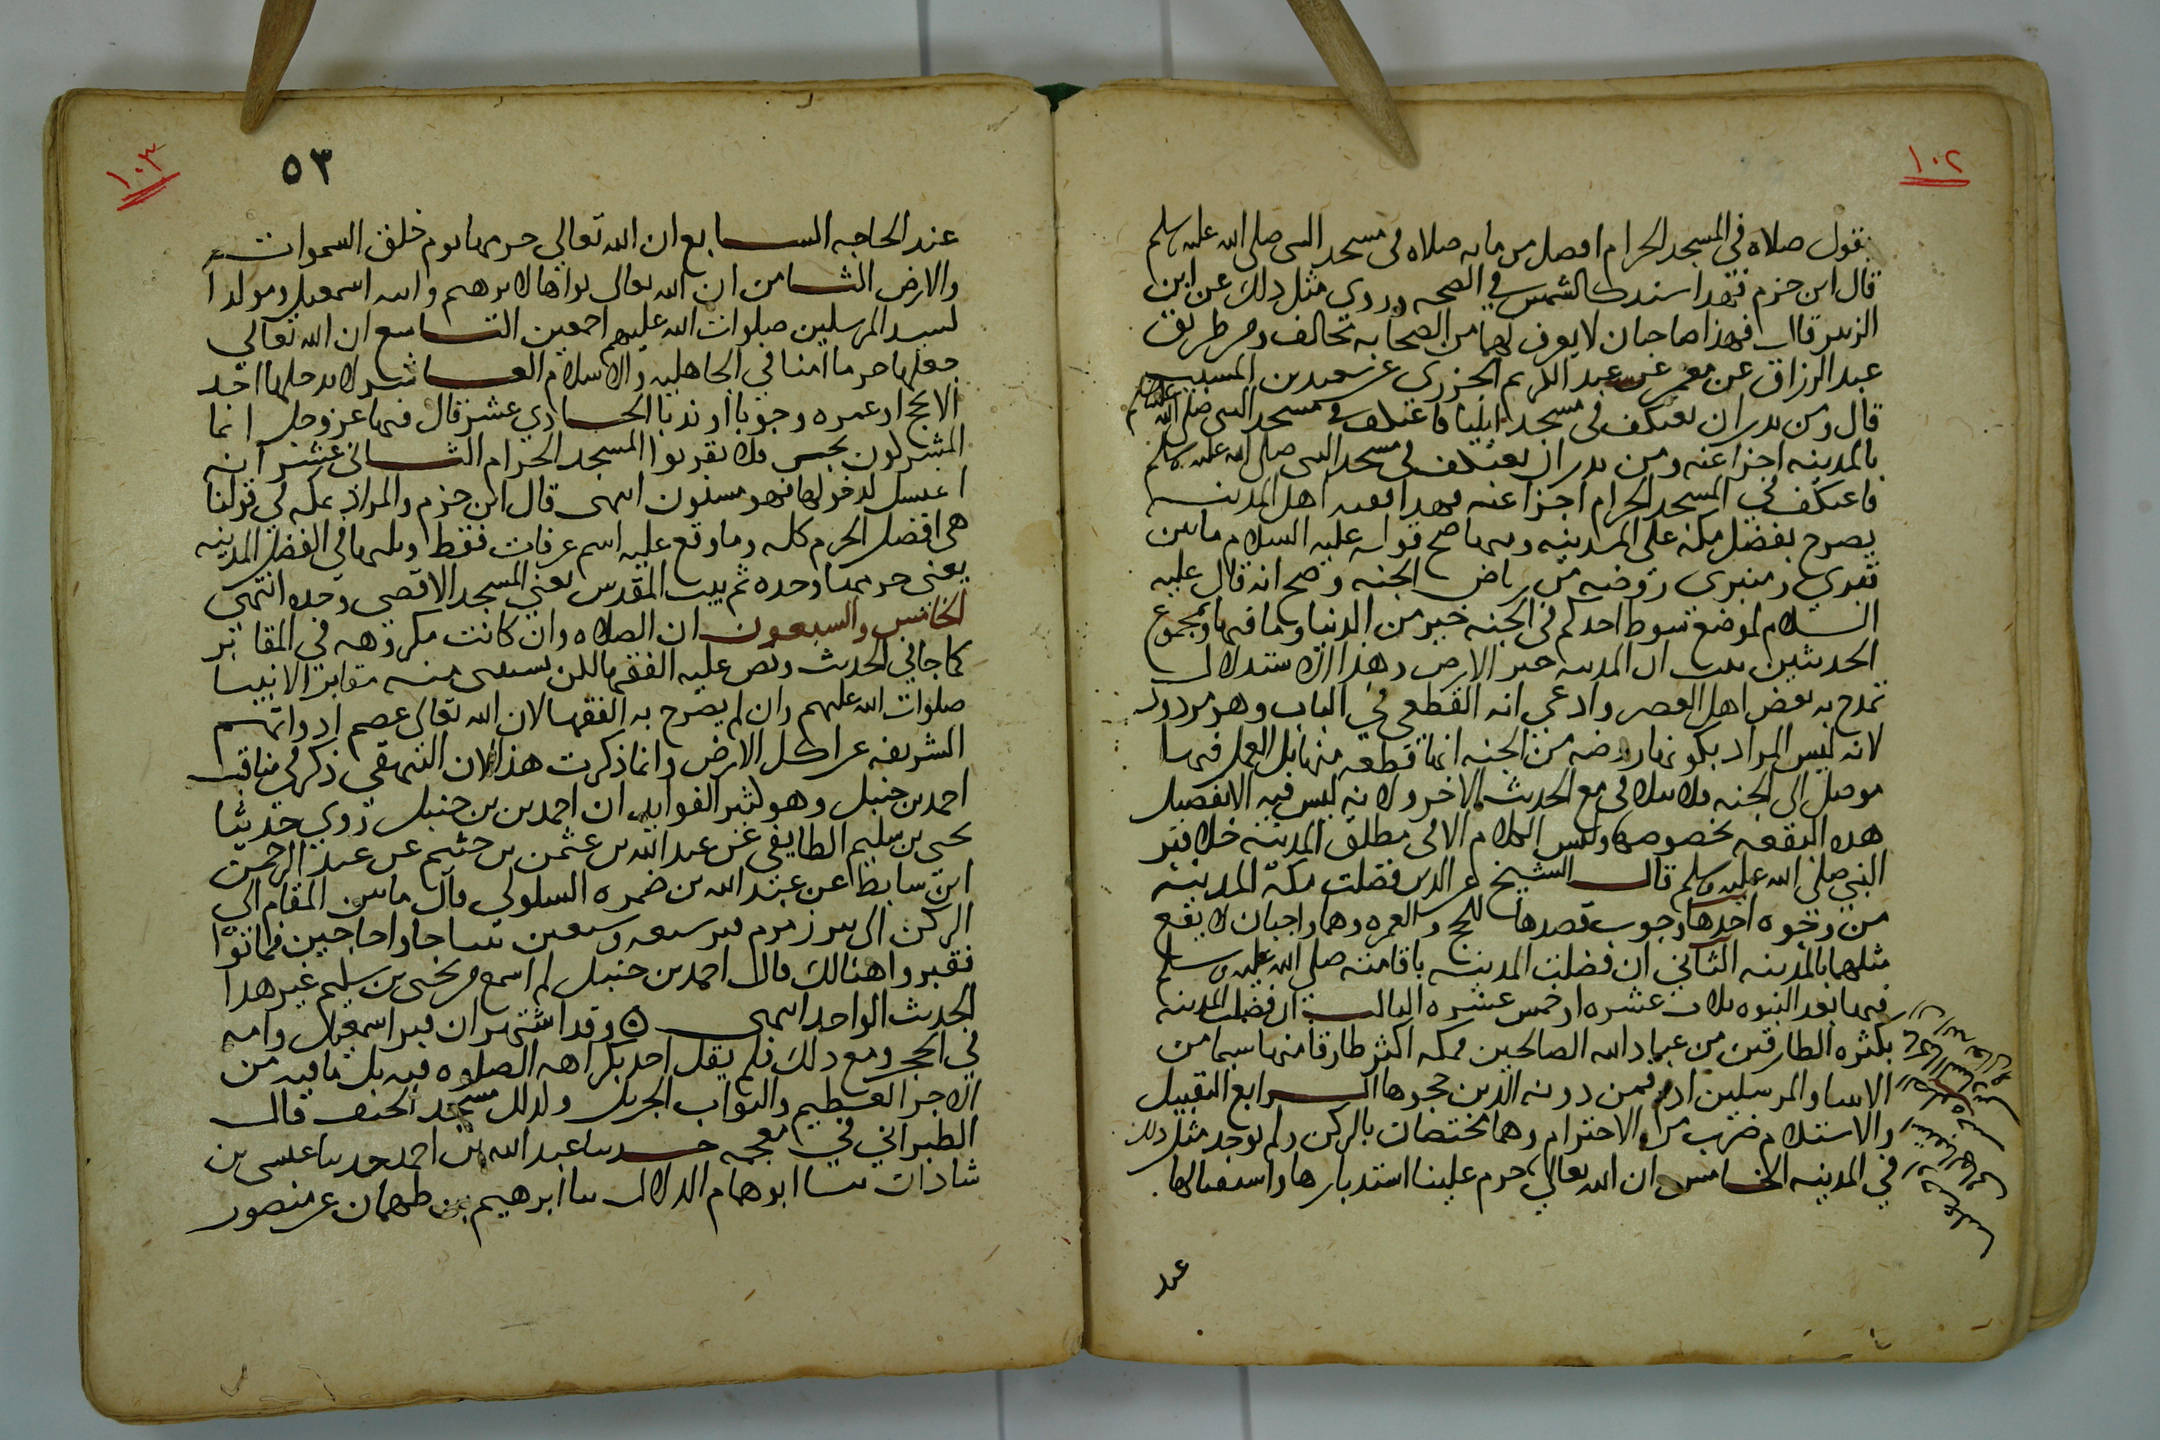 ١٠٢
يقول صلاة في المسجد الحرام افضل من مايه صلاه في مسجد النبي صلى الله عليه وسلم
قال ابن حزم فهذا سند كالشمس في الصحه وروي مثل ذلك عن ابن
الزبير قال فهذا صاحبان لا يعرف لهما من الصحابه مخالف ومن طريق
عبد الرزاق عن معمر عن عبد الكريم الجزري عن سعيد بن المسيب
قال ومن نذر ان يعتكف في مسجد ايليا فاعتكف في مسجد النبي صلى الله عليه وسلم
بالمدينه اجزا عنه ومن نذر ان يعتكف في مسجد النبي صلى الله عليه وسلم
فاعتكف في المسجد الحرام اجزا عنه فهذا فقيه اهل المدينه
يصرح بفضل مكة على المدينه ومنها صح قوله عليه السلام ما بين
قبري ومنبري روضه من رياض الجنه وصح انه قال عليه
السلام لموضع سوط احدكم في الجنه خير من الدنيا وما فيها ومجموع
الحديثين يثبت ان المدينه خير الارض وهذا الاستدلال
تمدح به بعض اهل العصر وادعي انه القطعي في الباب وهو مردود
لانه ليس المراد بكونها روضه من الجنه انها قطعه منها بل العمل فيها
موصل الى الجنه فلا ينافي مع الحديث الاخر ولانه ليس فيه الا تفضيل
هذه البقعه بخصوصها وليس الكلام الا في مطلق المدينه خلا قبر
النبي صلى الله عليه وسلم قال الشيخ عز الدين فضلت مكة المدينه
من وجوه احدها وجوب قصدها للحج والعمره وهما واجبان لا يقع
مثلهما بالمدينه الثاني ان فضلت المدينه باقامته صلى الله عليه وسلم
فيها بعد النبوه ثلاث عشره او خمس عشره الثالث ان فضلت المدينه
بكثره الطارقين من عباد الله الصالحين فمكه اكثر طارقا منها سيما من
الانبيا والمرسلين ادم فمن دونه الذين حجوها الرابع التقبيل
والاستلام ضرب من الاحترام وهما مختصان بالركن ولم يوجد مثل ذلك
في المدينه الخامس ان الله تعالى حرم علينا استدبارها واستقبالها
عند
١٠٣
٥٣
عند الحاجه السابع ان الله تعالي حرمها يوم خلق السموات
والارض الثامن ان الله تعالى بواها لابرهيم وابنه اسمعيل ومولدا
لسيد المرسلين صلوات الله عليهم اجمعين التاسع ان الله تعالي
جعلها حرما امنا في الجاهليه والاسلام العاشر لا يدخلها احد
الا بحج او عمره وجوبا او ندبا الحادي عشر قال فيها عز وجل انما
المشركون نجس فلا يقربوا المسجد الحرام الثاني عشر انه
اغتسل لدخولها فهو مسنون انتهى قال ابن حزم والمراد بمكه في قولنا
هي افضل الحرم كله وما وقع عليه اسم عرفات فقط ويليها في الفضل المدينه
يعني حرمها وحده ثم بيت المقدس يعني المسجد الاقصي وحده انتهى
الخامس والسبعون ان الصلاه وان كانت مكروهه في المقابر
كما جا في الحديث ونص عليه الفقها لكن يستثنى منه مقابر الانبيا
صلوات الله عليهم وان لم يصرح به الفقها لان الله تعالى عصم ادواتهم
الشريفه عن اكل الارض وانما ذكرت هذا لان البيهقي ذكر في مناقب
احمد بن حنبل وهو كثير الفوايد ان احمد بن بن حنبل روي حديثا
يحيى بن سليم الطايفي عن عبد الله بن عثمن بن خثيم عن عبد الرحمن
ابن سابط عن عبد الله بن ضمره السلولي قال ما بين المقام الي
الركن الى بير زمزم قبر سبعه وسبعين نبيا جاوا حاجين فماتوا
فقبروا هنالك قال احمد بن حنبل لم اسمع من يحيى بن سليم غير هذا
الحديث الواحد انتهى ٥ وقد اشتهر ان قبر اسمعيل وامه
في الحجر ومع ذلك فلم يقل احد بكراهه الصلوه فيه بل ما فيه من
الاجر العظيم والثواب الجزيل وكذلك مسجد الخيف قال
الطبراني في معجمه حدثنا عبد الله بن احمد حدثنا عيسى بن
شاذان ثنا ابو همام الدلال ثنا ابرهيم بن طهمان عن منصور